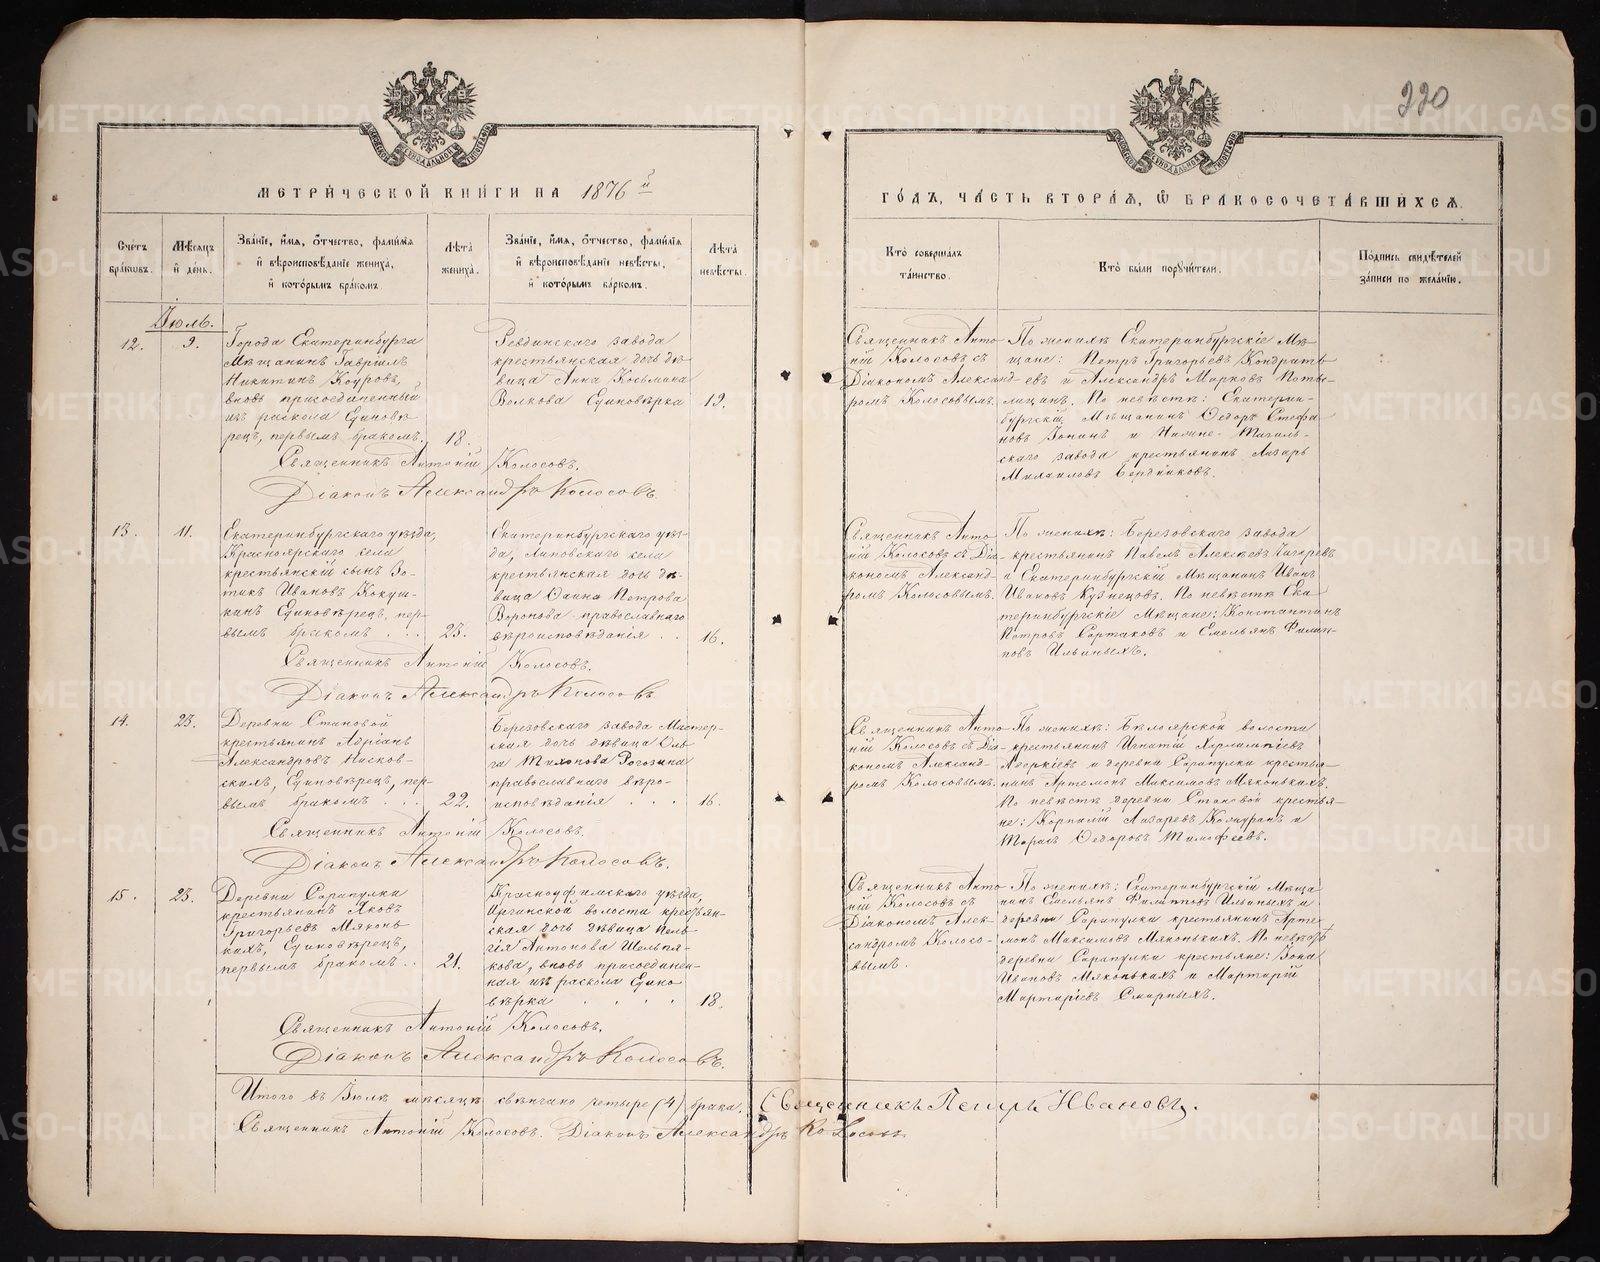 220
МЕТРИЧЕСКОЙ КНИГИ НА 1876й
ГОДЪ, ЧАСТЬ ВТОРАЯ, Ѿ БРАКОСОЧЕТАВШИХСЯ.
Счетъ браковъ.
Мѣсяцъ и день.
Званіе, имя, отчество, фамилія
и вѣроисповѣданіе жениха,
и которымъ бракомъ.
Лѣта
жениха.
Званіе, имя, отчество, фамилія
и вѣроисповѣданіе невѣсты,
и которымъ баркомъ.
Лѣта
невѣсты.
Кто совершалъ
таинство.
Кто были поручители.
Подпись свидѣтелей
записи по желанію.
Іюль.
12.
9.
Города Екатеринбурга
Мѣщанинъ Гавріилъ
Никитинъ
вновь присоединенный
изъ раскола Единовѣ-
рецъ, первымъ бракомъ.
18.
Ревдинскаго завода
крестьянская дочь дѣ
вица Анна Косьмина
Волкова Единовѣрка
19.
Священникъ Анто
ній Колосовъ съ
Діакономъ Александ-
ромъ Колосовымъ.
По женихѣ Екатеринбургскіе Мѣ
щане: Петръ Григорьевъ Кондрать
евъ и Александръ Марковъ
По невѣстѣ: Екатерин-
бургскій Мѣщанинъ Ѳедоръ Стефа
новъ и Нижне-Тагиль-
скаго завода крестьянинъ Лазарь
Михаиловъ Бердниковъ.
Священникъ Антоній Колосовъ.
Діаконъ Александръ Колосовъ.
13.
11.
Екатеринбургскаго уѣзда,
Красноярскаго села
крестьянскій сынъ Зо-
тикъ Ивановъ Кокуш-
кинъ Единовѣрецъ, пер-
вымъ бракомъ . . .
23.
Екатеринбургскаго уѣз-
да, Липовскаго села
крестьянская дочь дѣ-
вица Петрова
Воронова православнаго
вѣроисповѣданія . .
16.
Священникъ Анто-
ній Колосовъ съ Діа-
кономъ Александ-
ромъ Колосовымъ.
По женихѣ: Березовскаго завода
крестьянинъ Павелъ Алексѣевъ
и Екатеринбургскій Мѣщанинъ Иванъ
Ивановъ Кузнецовъ. По невѣстѣ Ека
теринбургскіе Мѣщане: Константинъ
Петровъ Сартаковъ и Емельянъ Филип-
повъ Ильиныхъ.
Священникъ Антоній Колосовъ.
Діаконъ Александръ Колосовъ
14.
23.
Деревни Становой
крестьянинъ Адріанъ
Александровъ Насков-
скихъ, Единовѣрецъ, пер-
вымъ бракомъ . . .
22.
Березовскаго завода Мастер-
ская дочь дѣвица Оль-
га Тихонова Рогозина
православнаго вѣро-
исповѣданія . . .
16.
Священникъ Анто
ній Колосовъ съ Діа-
кономъ Александ-
ромъ Колосовымъ.
По женихѣ: Бѣлоярской волости
крестьянинъ Игнатій Харлампіевъ
и деревни Сарапулки крестья-
нинъ Артемонъ Максимовъ Мяконькихъ.
По невѣстѣ деревни Становой крестья-
не: Корнилій Лазаревъ и
Тарасъ Ѳедоровъ Тимофеевъ.
Священникъ Антоній Колосовъ.
Діаконъ Александръ Колосовъ.
15.
23.
Деревни Сарапулки
крестьянинъ Яковъ
Григорьевъ Мяконь
кихъ, Единовѣрецъ,
первымъ бракомъ . .
21.
Красноуфимскаго уѣзда,
Иргинской волости крестьян-
ская дочь дѣвица Пела-
гія Антонова Шельпя-
кова, вновь присоединен-
ная изъ раскола Едино
вѣрка . . . .
18.
Священникъ Анто
ній Колосовъ съ
Діакономъ Алек-
сандромъ Колосо-
вымъ.
По женихѣ: Екатеринбургскій Мѣща
нинъ Емельянъ Филипповъ Ильиныхъ и
деревни Сарапулки крестьянинъ Арте
монъ Максимовъ Мяконькихъ. По невѣстѣ
деревни Сарапулки крестьяне: Іона
Ивановъ Мяконькихъ и Мартирій
Мартиріевъ Смирныхъ.
Священникъ Антоній Колосовъ.
Діаконъ Александръ Колосовъ.
Итого въ Іюлѣ мѣсяцѣ свѣнчано четыре (4) брака.
Священникъ Петръ Ивановъ.
Священникъ Антоній Колосовъ. Діаконъ Александръ Колосовъ
METRIKI.GASO-URAL.RU